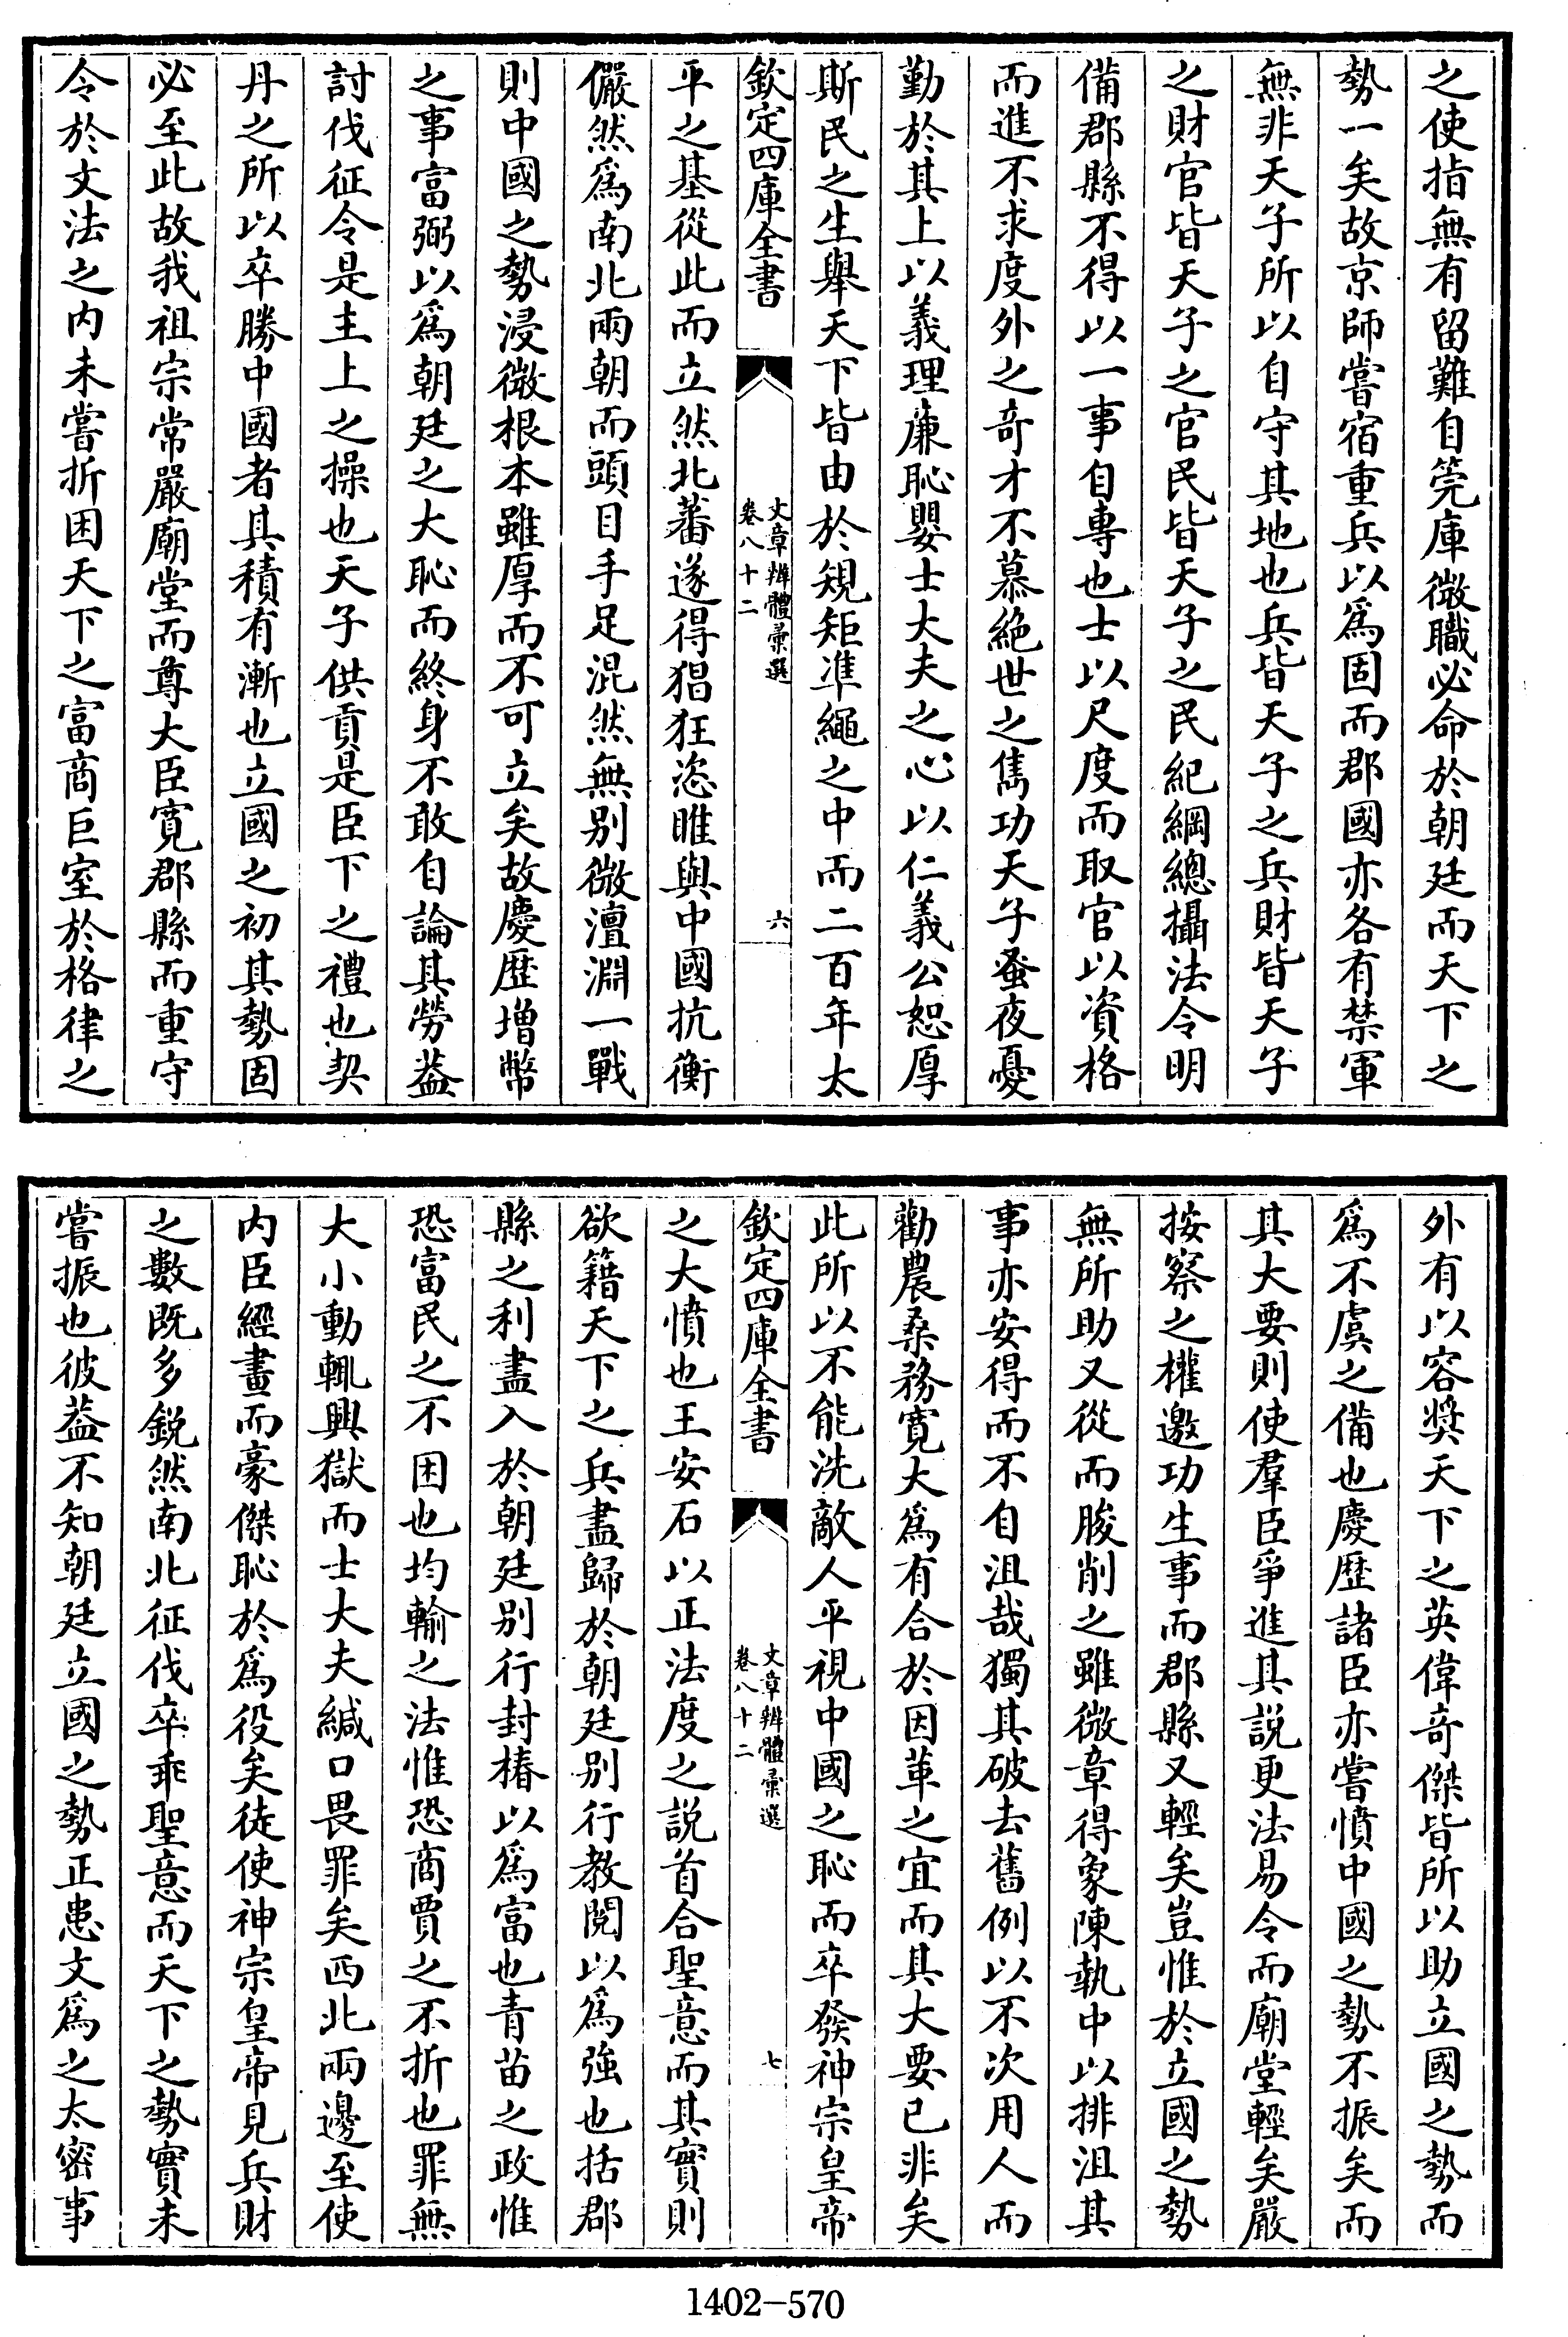 之使指無有留難自筦庫微職必命於朝廷而天下之
勢一矣故京師嘗宿重兵以爲固而郡國亦各有禁軍
無非天子所以自守其地也兵皆天子之兵財皆天子
之財官皆天子之官民皆天子之民紀綱總攝法令明
備郡縣不得以一事自專也士以尺度而取官以資格
而進不求度外之奇才不慕絶世之雋功天子蚤夜憂
勤於其上以義理廉恥嬰士大夫之心以仁義公恕厚
斯民之生舉天下皆由於規矩準繩之中而二百年太
欽定四庫全書
文章辨體彙選
卷八十二
六
平之基從此而立然北蕃遂得猖狂恣睢與中國抗衡
儼然爲南北兩朝而頭目手足混然無别微澶淵一戰
則中國之勢浸微根本雖厚而不可立矣故慶歴增幣
之事富弼以爲朝廷之大恥而終身不敢自論其勞葢
討伐征令是主上之操也天子供貢是臣下之禮也契
丹之所以卒勝中國者其積有漸也立國之初其勢固
必至此故我祖宗常嚴廟堂而尊大臣寛郡縣而重守
令於文法之内未嘗折困天下之富商巨室於格律之
外有以容奬天下之英偉奇傑皆所以助立國之勢而
爲不虞之備也慶歴諸臣亦嘗憤中國之勢不振矣而
其大要則使羣臣爭進其説更法易令而廟堂輕矣嚴
按察之權邀功生事而郡縣又輕矣豈惟於立國之勢
無所助又從而朘削之雖微章得象陳執中以排沮其
事亦安得而不自沮哉獨其破去舊例以不次用人而
勸農桑務寛大爲有合於因革之宜而其大要已非矣
此所以不能洗敵人平視中國之恥而卒發神宗皇帝
欽定四庫全書
文章辨體彙選
卷八十二
七
之大憤也王安石以正法度之説首合聖意而其實則
欲籍天下之兵盡歸於朝廷别行教閲以爲強也括郡
縣之利盡入於朝廷别行封樁以爲富也青苗之政惟
恐富民之不困也均輸之法惟恐商賈之不折也罪無
大小動輒興獄而士大夫緘口畏罪矣西北兩邊至使
内臣經畫而豪傑恥於爲役矣徒使神宗皇帝見兵財
之數既多鋭然南北征伐卒乖聖意而天下之勢實未
嘗振也彼葢不知朝廷立國之勢正患文爲之太密事
1402-570